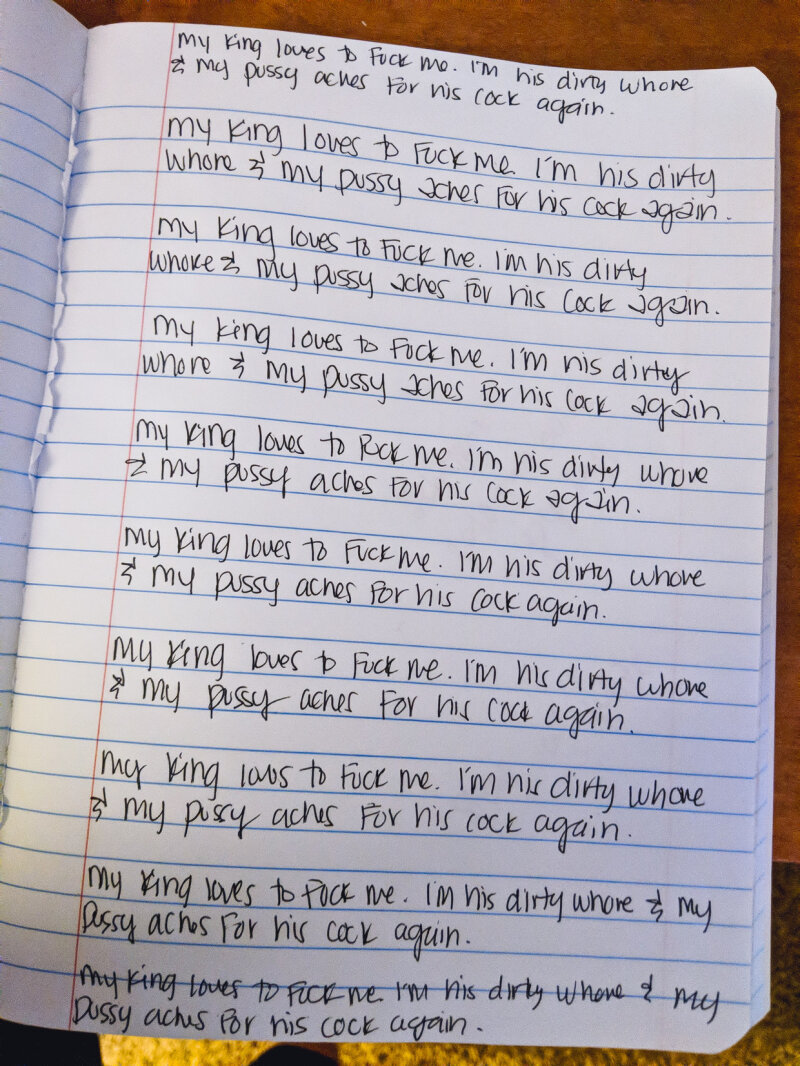 my King loves to Fuck me. I'm his dirty whore
& my pussy aches for his cock again.
my King loves to Fuck me. I'm his dirty
whore & my pussy aches for his cock again.
my King loves to Fuck me. I'm his dirty
whore & my pussy aches for his cock again.
my King loves to Fuck me. I'm his dirty
whore & my pussy aches for his cock again.
my King loves to Fuck me. I'm his dirty whore
& my pussy aches for his cock again.
my King loves to Fuck me. I'm his dirty whore
& my pussy aches for his cock again.
my King loves to Fuck me. I'm his dirty whore
& my pussy aches for his cock again.
my King loves to Fuck me. I'm his dirty whore
& my pussy aches for his cock again.
my King loves to Fuck me. I'm his dirty whore & my
pussy aches for his cock again.
my King loves to Fuck me. I'm his dirty whore & my
pussy aches for his cock again.